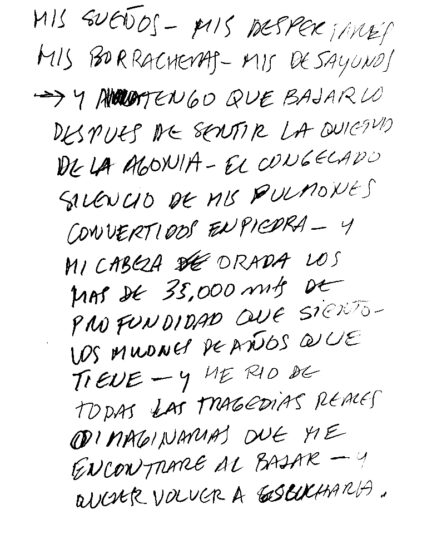 MIS SUEÑOS - MIS DESPERTARES
MIS BORRACHERAS - MIS DESAYUNOS
→ Y TENGO QUE BAJARLO
DESPUES DE SENTIR LA QUIETUD
DE LA AGONIA - EL CONGELADO
SILENCIO DE MIS PULMONES
CONVERTIDOS EN PIEDRA - Y
MI CABEZA ORADA LOS
MAS DE 35,000 mts DE
PROFUNDIDAD QUE SIENTO -
LOS MILLONES DE AÑOS QUE
TIENE - Y ME RIO DE
TODAS LAS TRAGEDIAS REALES
O IMAGINARIAS QUE ME
ENCONTRARE AL BAJAR - Y
QUERER VOLVER A ESCUCHARLA.